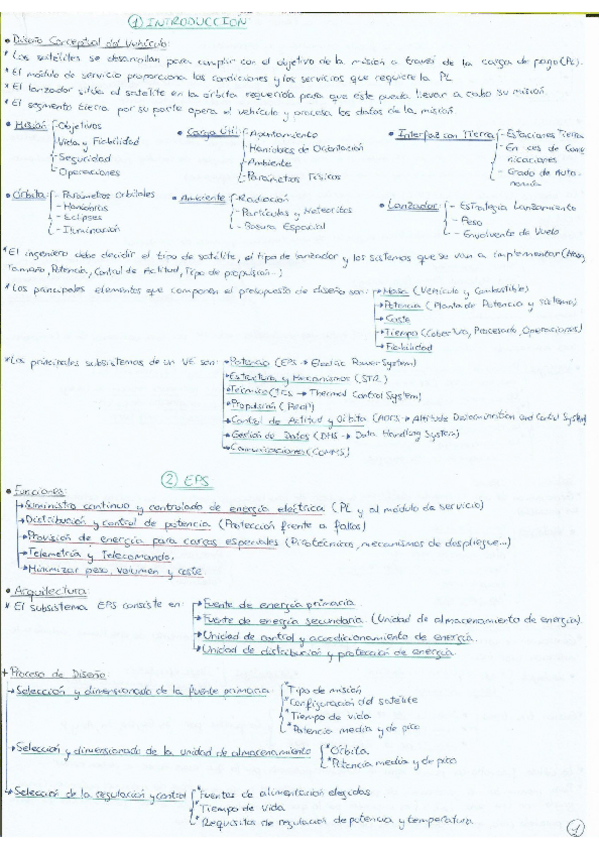 ① INTRODUCCIÓN
• Diseño Conceptual del Vehículo:
* Los satélites se desarrollan para cumplir con el objetivo de la misión a través de la carga de pago (PL).
* El módulo de servicio proporciona las condiciones y los servicios que requiere la PL
* El lanzador sitúa al satélite en la órbita requerida para que éste pueda llevar a cabo su misión.
* El segmento tierra por su parte opera el vehículo y procesa los datos de la misión.
• Misión - Objetivos
- Vida y Fiabilidad
- Seguridad
- Operaciones
• Carga Útil - Apuntamiento
- Maniobras de Orientación
- Ambiente
- Parámetros Físicos
• Interfaz con Tierra - Estaciones Tierra
- Enlaces de Comunicaciones
- Grado de Autonomía
• Órbita - Parámetros Orbitales
- Maniobras
- Eclipses
- Iluminación
• Ambiente - Radiación
- Partículas y Meteoritos
- Basura Espacial
• Lanzador - Estrategia Lanzamiento
- Peso
- Envolvente de Vuelo
* El ingeniero debe decidir el tipo de satélite, el tipo de lanzador y los sistemas que se van a implementar (
Tamaño, Potencia, Control de Actitud, Tipo de propulsión...)
* Los principales elementos que componen el presupuesto de diseño son: → Masa (Vehículo y Combustible)
→ Potencia (Planta de Potencia y Sistema)
→ Coste
→ Tiempo (Cobertura, Procesado, Operaciones)
→ Fiabilidad
* Los principales subsistemas de un VE son: → Potencia (EPS → Electric Power System)
→ Estructura y Mecanismos (STR)
→ Térmico (TCS → Thermal Control System)
→ Propulsión (Prop)
→ Control de Actitud y Órbita (AOCS → Attitude Determination and Control System)
→ Gestión de Datos (DHS → Data Handling System)
→ Comunicaciones (COMMS)
② EPS
• Funciones:
→ Suministro continuo y controlado de energía eléctrica (PL y al módulo de servicio)
→ Distribución y control de potencia (Protección frente a fallos)
→ Provisión de energía para cargas especiales (Pirotécnicos, mecanismos de despliegue...)
→ Telemetría y Telecomando.
→ Minimizar peso, volumen y coste.
• Arquitectura:
* El subsistema EPS consiste en: → Fuente de energía primaria.
→ Fuente de energía secundaria. (Unidad de almacenamiento de energía).
→ Unidad de control y acondicionamiento de energía.
→ Unidad de distribución y protección de energía.
+ Proceso de Diseño
→ Selección y dimensionado de la fuente primaria. * Tipo de misión
* Configuración del satélite
* Tiempo de vida
* Potencia media y de pico
→ Selección y dimensionado de la unidad de almacenamiento * Órbita
* Potencia media y de pico
→ Selección de la regulación y control * Fuentes de alimentación elegidas
* Tiempo de Vida
* Requisitos de regulación de potencia y temperatura
1